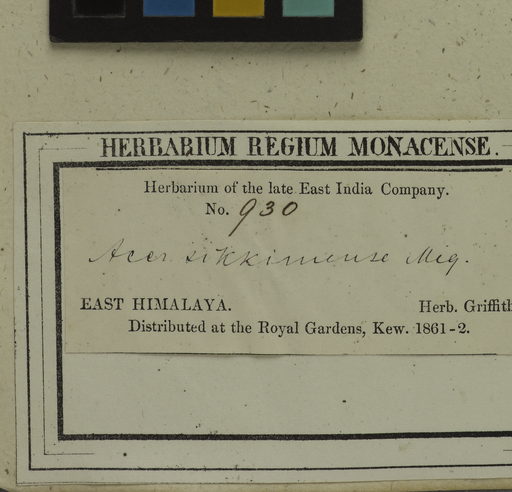 HERBARIUM REGIUM MONACENSE.
Herbarium of the late East India Company.
No. 930
Acer sikkimense Miq.
EAST HIMALAYA. Herb. Griffith
Distributed at the Royal Gardens, Kew. 1861-2.